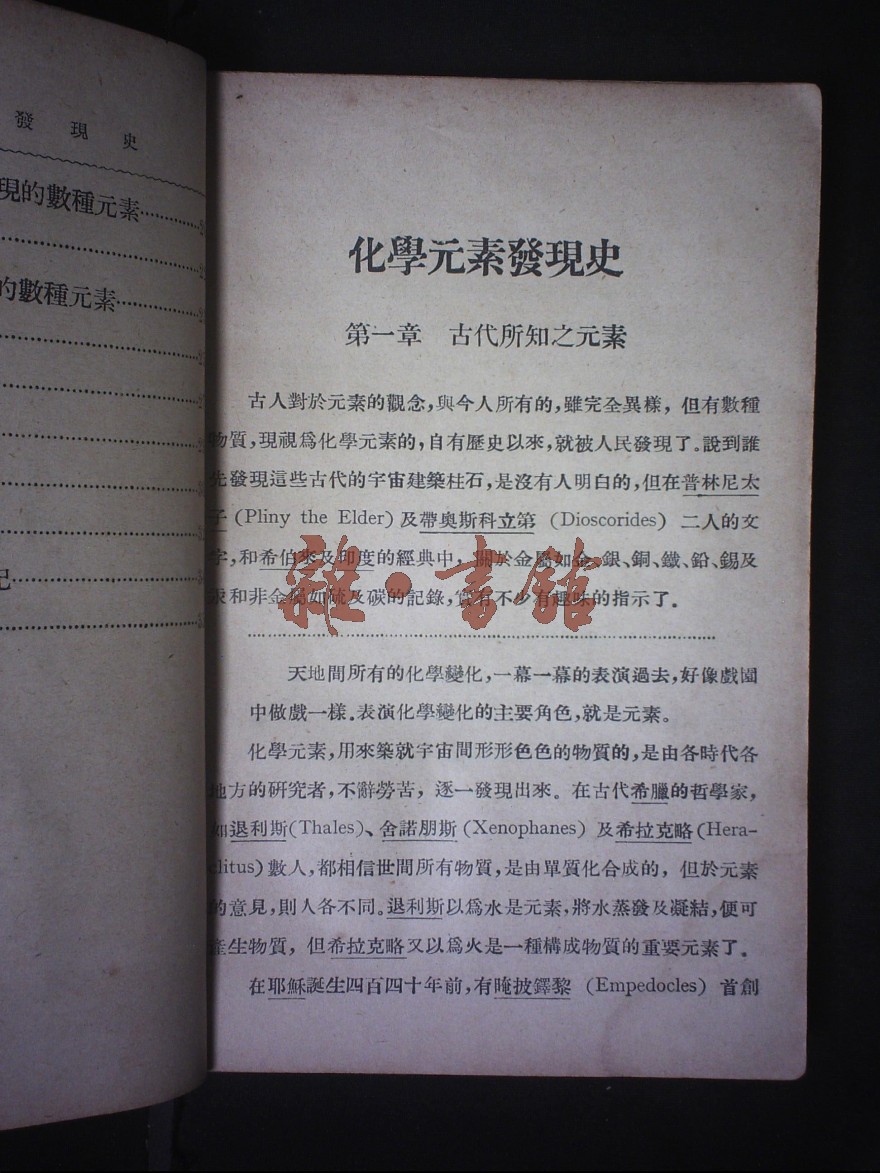 發現史
現的數種元素
的數種元素
記
化學元素發現史
第一章 古代所知之元素
古人對於元素的觀念,與今人所有的,雖完全異樣,但有數種
物質,現視爲化學元素的,自有歷史以來,就被人民發現了。說到誰
先發現這些古代的宇宙建築柱石,是沒有人明白的,但在普林尼太
子 (Pliny the Elder) 及帶奧斯科立第 (Dioscorides) 二人的文
字,和希伯來及印度的經典中,關於金屬如金、銀、銅、鐵、鉛、錫及
汞和非金屬如硫及碳的記錄,實有不少有趣味的指示了.
雜·書館
天地間所有的化學變化,一幕一幕的表演過去,好像戲園
中做戲一樣.表演化學變化的主要角色,就是元素。
化學元素,用來築就宇宙間形形色色的物質的,是由各時代各
地方的研究者,不辭勞苦,逐一發現出來。在古代希臘的哲學家,
如退利斯(Thales)、舍諾朋斯 (Xenophanes) 及希拉克略 (Hera-
clitus) 數人,都相信世間所有物質,是由單質化合成的,但於元素
的意見,則人各不同。退利斯以爲水是元素,將水蒸發及凝結,便可
產生物質,但希拉克略又以爲火是一種構成物質的重要元素了。
在耶穌誕生四百四十年前,有晻披鐸黎 (Empedocles) 首創